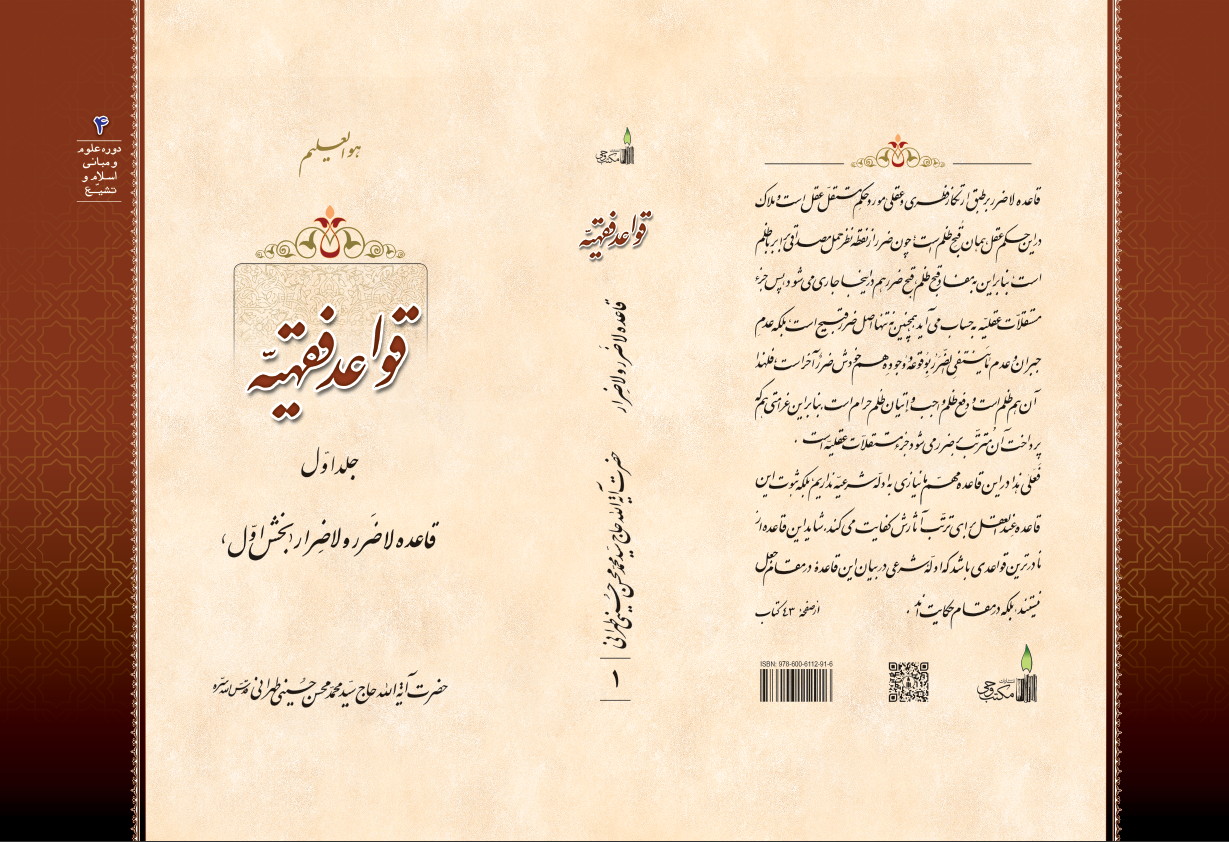 ۴
دوره علوم
و مبانی
اسلام و
تشیّع
هو العلیم
قواعد فقهیّه
جلد اوّل
قاعده لاضَرر و لاضِرار (بخش اوّل)
حضرت آیة الله حاج سیّد محمّد محسن حسینی طهرانی قدّس الله سرّه
انتشارات
مکتب وحی
قواعد فقهیّه
قاعده لاضَرر و لاضِرار
حضرت آیة الله حاج سیّد محمّد محسن حسینی طهرانی
۱
قاعده لاضرر بر طبق ارتکاز فطری و عقلی مورد حکم مستقلّ عقل است و ملاک
در این حکم عقل همان قُبح ظلم است؛ چون ضرر از نقطه نظر حمل مصداقی برابر با ظلم
است؛ بنابراین به مفاد قبح ظلم، قبح ضرر هم در اینجا جاری می‌شود، پس جزء
مستقلّات عقلیّه به حساب می‌آید. همچنین نه تنها اصل ضرر قبیح است، بلکه عدم
جبران و عدم ما ینتفی الضّرر بوقوعه و وجوده هم خودش ضررٌ آخر است، فلهذا
آن هم ظلم است و دفع ظلم واجب و إتیان ظلم حرام است. بنابراین غرامتی هم که
پرداخت آن مترتّب بر ضرر می‌شود جزء مستقلّات عقلیّه است.
فَعَلی هذا در این قاعده مهم ما نیازی به ادلّه شرعیّه نداریم بلکه ثبوت این
قاعده عِندَ العقل برای ترتّب آثارش کفایت می‌کند. شاید این قاعده از
نادرترین قواعدی باشد که ادلّه شرعی در بیان این قاعده در مقام جعل
نیستند، بلکه در مقام حکایت‌اند.
از صفحۀ ٤٣ کتاب
ISBN: 978-600-6112-91-6
انتشارات
مکتب وحی